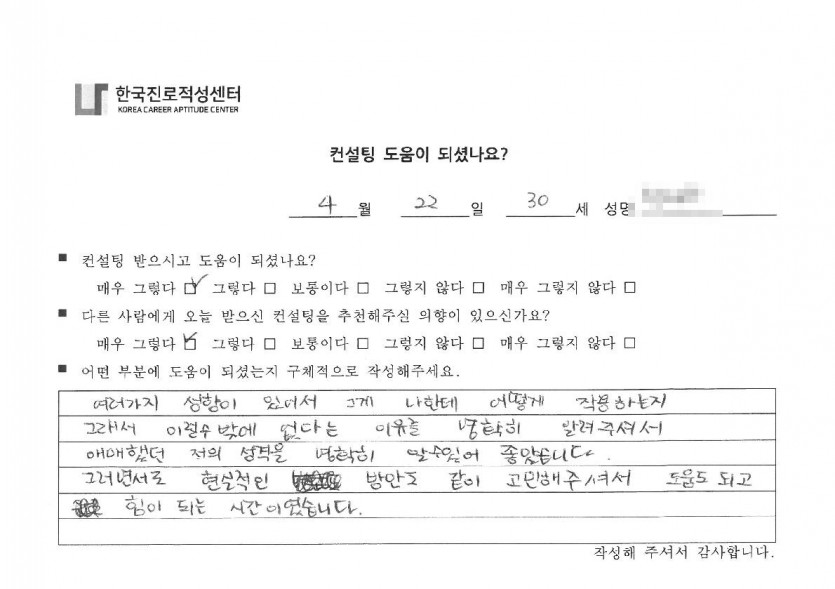 한국진로적성센터
KOREA CAREER APTITUDE CENTER
컨설팅 도움이 되셨나요?
4 월 22 일 30 세 성명
■ 컨설팅 받으시고 도움이 되셨나요?
매우 그렇다 ☑ 그렇다 □ 보통이다 □ 그렇지 않다 □ 매우 그렇지 않다 □
■ 다른 사람에게 오늘 받으신 컨설팅을 추천해주실 의향이 있으신가요?
매우 그렇다 ☑ 그렇다 □ 보통이다 □ 그렇지 않다 □ 매우 그렇지 않다 □
■ 어떤 부분에 도움이 되셨는지 구체적으로 작성해주세요.
여러가지 성향이 있어서 그게 나한테 어떻게 작용하는지
그래서 이럴수 밖에 없다는 이유를 명확히 알려주셔서
애매했던 저의 성격을 명확히 알수있어 좋았습니다.
그러면서도 현실적인 방안도 같이 고민해주셔서 도움도 되고
힘이 되는 시간이었습니다.
작성해 주셔서 감사합니다.